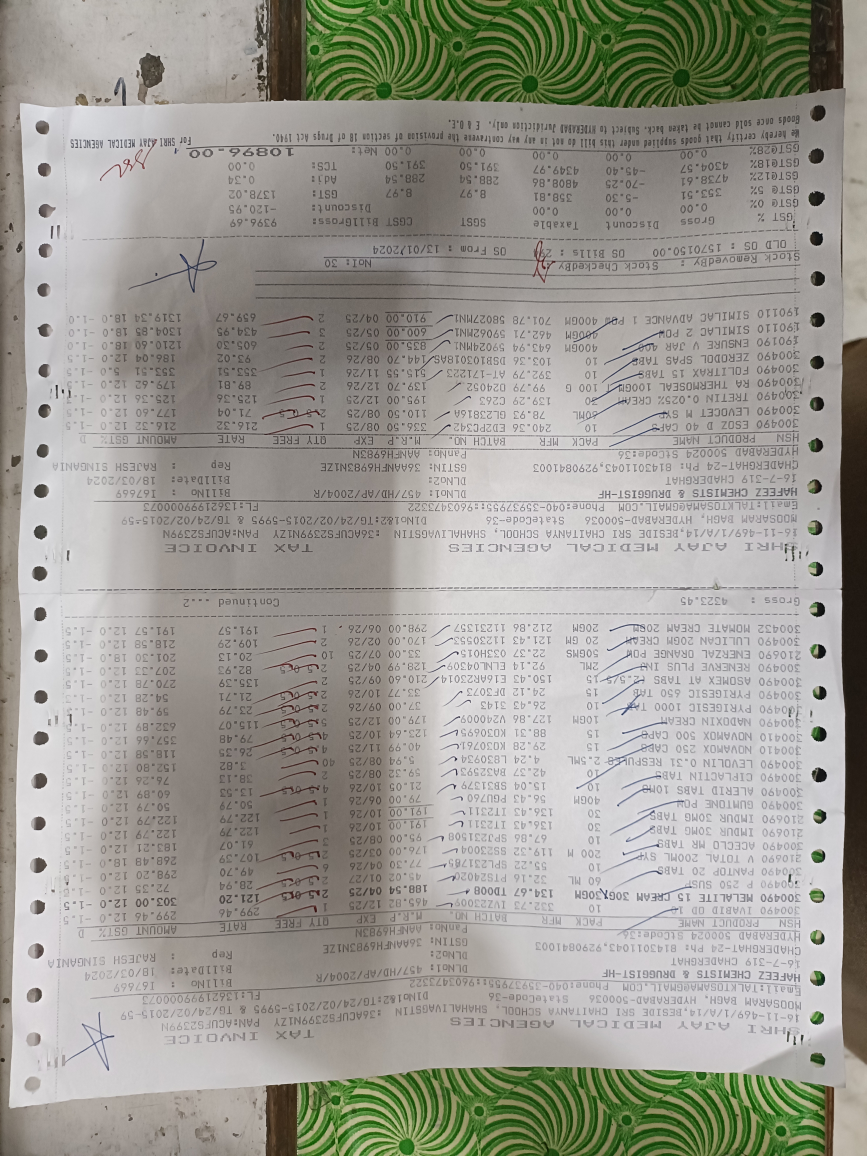 SHRI AJAY MEDICAL AGENCIES TAX INVOICE
16-11-469/1/A/14,BESIDE SRI CHAITANYA SCHOOL, SHAHALIVAGSTIN : 36ACUFS2399N1ZY PAN:ACUFS2399N
MOOSARAM BAGH, HYDERABAD-500036 StateCode-36 DlNo1&2:TG/24/02/2015-5995 & TG/24/02/2015-59
Email:TALKTOSAMA@GMAIL.COM Phone:040-35937955::9603473322 FL:13621999000073
HAFEEZ CHEMISTS & DRUGGIST-HF DLNo1: 457/HD/AP/2004/R BillNo : 167669
16-7-319 CHADERGHAT DLNo2: BillDate: 18/03/2024
CHADERGHAT-24 Ph: 8143011043,9290841003 GSTIN: 36AANFH6983N1ZE Rep : RAJESH SINGANIA
HYDERABAD 500024 StCode:36 PanNo: AANFH6983N
HSN PRODUCT NAME PACK MFR BATCH NO. M.R.P EXP QTY FREE RATE AMOUNT GST% D
300490 IVABID OD 10 10 332.73 1VZ23009 465.82 12/25 1 299.46 299.46 12.0 -1.5
300490 MELALITE 15 CREAM 30G 30GM 134.67 IDO08 188.54 04/25 2.5 0.5 121.20 303.00 12.0 -1.5
300490 P 250 SUSP 60 ML 32.16 PTS24020 45.02 01/27 2.5 0.5 28.94 72.35 12.0 -1.5
300490 PANTOP 20 TABS 10 55.22 SPL231785 77.30 04/26 6 49.70 298.20 12.0
210690 V TOTAL 200ML SYP 200 M 119.32 SB23004 176.00 03/25 2.5 107.39 268.48 18.0
300490 ACECLO MR TABS 10 67.86 SPZ31508 95.00 08/25 3 61.07 183.21 12.0 -1.5
210690 INDUR 30MG TABS 30 136.43 1T2311 191.00 10/26 1 122.79 122.79 12.0 -1.5
210690 INDUR 30MG TABS 30 136.43 1T2311 191.00 10/26 1 122.79 122.79 12.0
300490 GUMTONE POW 40GM 56.43 PGU760 79.00 06/26 1 50.79 50.79 12.0 -1.5
300490 ALERID TABS 10MG 10 15.04 SB31379 21.05 10/26 4.5 0.5 13.53 60.89 12.0 -1.5
300490 CIPLACTIN TABS 10 42.37 BA32592 59.32 08/25 2 38.13 76.26 12.0 -1.5
300490 LEVOLIN 0.31 RESPULES 2.5ML 4.24 LB30934 5.94 08/25 40 3.82 152.80 12.0 -1.5
300410 NOVAMOX 250 CAPS 15 29.28 KO30761 40.99 11/25 4.5 0.5 26.35 118.58 12.0 -1.5
300410 NOVAMOX 500 CAPS 15 88.31 KO30695 123.64 10/25 4.5 0.5 79.48 357.66 12.0 -1.5
300490 NADOXIN CREAM 10GM 127.86 V240009 179.00 12/25 5.5 0.5 115.07 632.89 12.0 -1.5
300490 PYRIGESIC 1000 TAB 10 26.43 3143 37.00 09/26 2.5 0.5 23.79 59.48 12.0 -1.5
300490 PYRIGESIC 650 TAB 15 24.12 DF3073 33.77 10/26 2.5 0.5 21.71 54.28 12.0 -1.5
300490 ASOMEX AT TABS (2.5/5 15 150.43 E1GAR23014 210.60 09/25 2 135.39 270.78 12.0 -1.5
300490 RENERVE PLUS INJ 2ML 92.14 ELNLO4309 128.99 04/25 2.5 0.5 82.93 207.33 12.0 -1.5
210690 ENERZAL ORANGE POW 50GMS 22.37 O33H015 33.00 07/25 10 20.13 201.30 18.0 -1.5
300490 LULICAN 20GM CREAM 20 GM 121.43 11230553 170.00 02/26 2 109.29 218.58 12.0 -1.5
300432 MOMATE CREAM 20GM 20GM 212.86 11231357 298.00 06/26 1 191.57 191.57 12.0 -1.5
Gross : 4323.45 Continued ...2
SHRI AJAY MEDICAL AGENCIES TAX INVOICE
16-11-469/1/A/14,BESIDE SRI CHAITANYA SCHOOL, SHAHALIVAGSTIN : 36ACUFS2399N1ZY PAN:ACUFS2399N
MOOSARAM BAGH, HYDERABAD-500036 StateCode-36 DlNo1&2:TG/24/02/2015-5995 & TG/24/02/2015-59
Email:TALKTOSAMA@GMAIL.COM Phone:040-35937955::9603473322 FL:13621999000073
HAFEEZ CHEMISTS & DRUGGIST-HF DLNo1: 457/HD/AP/2004/R BillNo : 167669
16-7-319 CHADERGHAT DLNo2: BillDate: 18/03/2024
CHADERGHAT-24 Ph: 8143011043,9290841003 GSTIN: 36AANFH6983N1ZE Rep : RAJESH SINGANIA
HYDERABAD 500024 StCode:36 PanNo: AANFH6983N
HSN PRODUCT NAME PACK MFR BATCH NO. M.R.P EXP QTY FREE RATE AMOUNT GST% D
300490 ESOZ D 40 CAPS 10 240.36 2EDP2C342 336.50 08/25 1 216.32 216.32 12.0 -1.5
300490 LEVOCET M SYP 60ML 78.93 GL23B16A 110.50 08/25 2.5 0.5 71.04 177.60 12.0 -1.5
300490 TRETIN 0.025% CREAM 30 139.29 C263 195.00 12/25 1 125.36 125.36 12.0 -1.5
300490 RA THERMOSEAL 100GM T 100 G 99.79 024052 139.70 12/26 2 89.81 179.62 12.0 -1.5
300490 FOLITRAX 15 TABS 10 392.79 AT-171223 515.55 11/26 1 353.51 353.51 5.0 -1.5
300490 ZERODOL SPAS TABS 10 103.36 DSB103018AS 144.70 08/26 2 93.02 186.04 12.0 -1.5
190190 ENSURE V JAR 400 400GM 643.94 59024MN 835.00 05/25 2 605.30 1210.60 18.0 -1.0
190110 SIMILAC 2 POW 400GM 462.71 59062MN1 600.00 05/25 3 434.95 1304.85 18.0 -1.0
190110 SIMILAC ADVANCE 1 POW 400GM 701.78 58027MN1 910.00 04/25 2 659.67 1319.34 18.0 -1.0
Stock RemovedBy : Stock CheckedBy : NoI: 30
OLD OS : 1570150.00 OS Bills : 294 OS From : 13/01/2024
GST % Gross Discount Taxable SGST CGST BillGross: 9396.69
GST@ 0% 0.00 0.00 0.00 Discount: -120.95
GST@ 5% 353.51 -5.30 358.81 8.97 8.97 GST: 1378.02
GST@12% 4738.61 -70.25 4808.86 288.54 288.54 Adj: 0.34
GST@18% 4304.57 -45.40 4349.97 391.50 391.50 TCS: 0.00
GST@28% 0.00 0.00 0.00 0.00 0.00 Net: 10896.00
We hereby certify that goods supplied under this bill do not in any way contravene the provision of section 18 of Drugs Act 1940.
Goods once sold cannot be taken back. Subject to HYDERABAD Juridiction only. E & O.E For SHRI AJAY MEDICAL AGENCIES